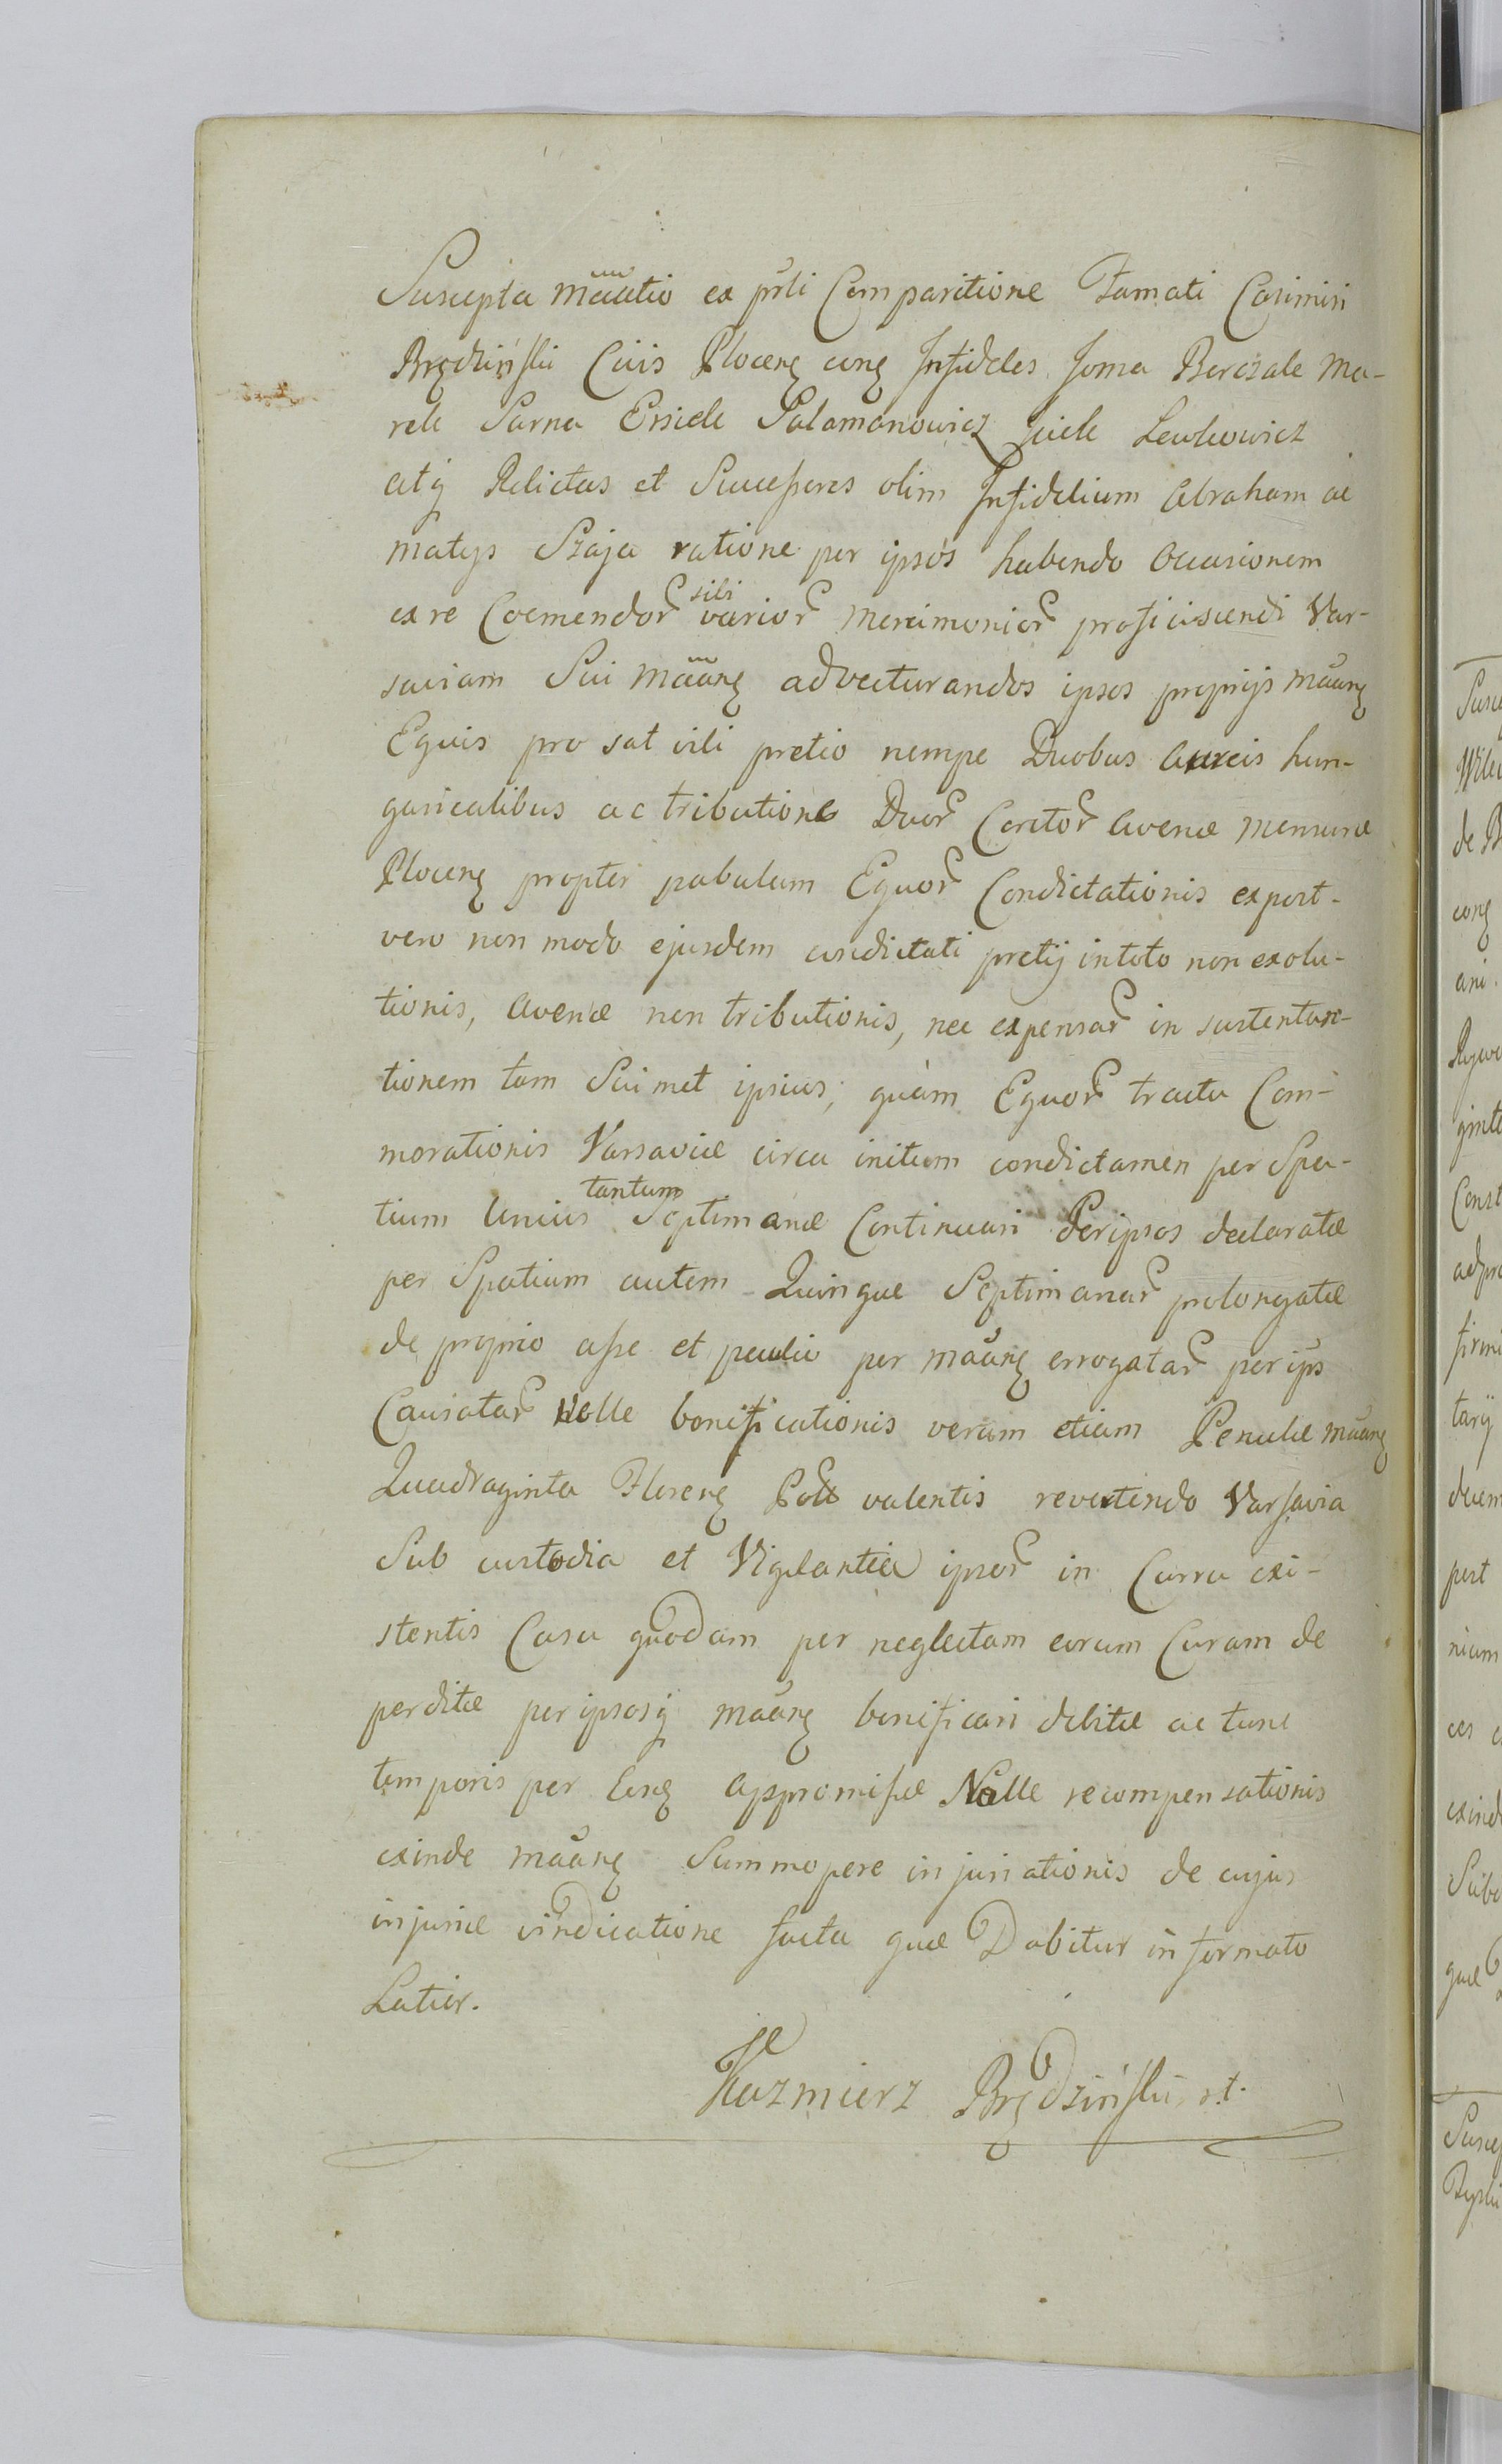 Suscepta Mãatio ex pr̃li Comparitione Famati Casimiri
Brędzinski Civis Plocenȩ conȩ Infideles Joma Berczale Ma-
rek Sarna Ersiele Salamonowicz Juele Lewkowicz
atq̨ Relictas et Successores olim Infidelium Abraham ac
Matys Szaja ratione per ipsos habendo Occasionem
ex re Coemendor̃ sibi varior̃ Mercimonior̃ proficiscendi Var-
saviam Sui Mãanȩ advecturandos ipsos proprijs Mãanȩ
Equis pro sat vili pretio nempe Duobus Aureis hun-
garicalibus ac tributione Duor̃ Coretor̃ Avenæ Mensuræ
Plocenȩ propter pabulum Equor̃ Condictationis expost-
vero non modo ejusdem condictati pretij in toto non exolu-
tionis, Avenæ non tributionis, nec expensar̃ in sustentan-
tionem tam Suimet ipsius, quàm Equor̃ tractu Com-
morationis Varsaviæ circa initum condictamen per Spa-
tium Unius tantum Septimanæ Continuari Per ipsos declaratæ
per Spatium autem Quinque Septimanar̃ prolongatæ
de proprio asse et peculio per Mãanȩ errogatar̃ per ips
Causatar̃ Nolle bonificationis verum etiam Penulæ Mãanȩ
Quadraginta Florenȩ Poll valentis revertendo Varsavia
Sub custodia et Vigilantia ipsor̃ in Curru exi-
stentis Casu quodam per neglectam eorum Curam de
perditæ per ipsosq̨ Mãanȩ bonificari debitæ ac tunc
temporis per Eosȩ Appromissæ Nolle recompensationis
exinde Mãanȩ Summopere injuriationis de cujus
injuriæ vindicatione facta quæ Dabitur informato
Latior.
Kazmierz Brędzinski